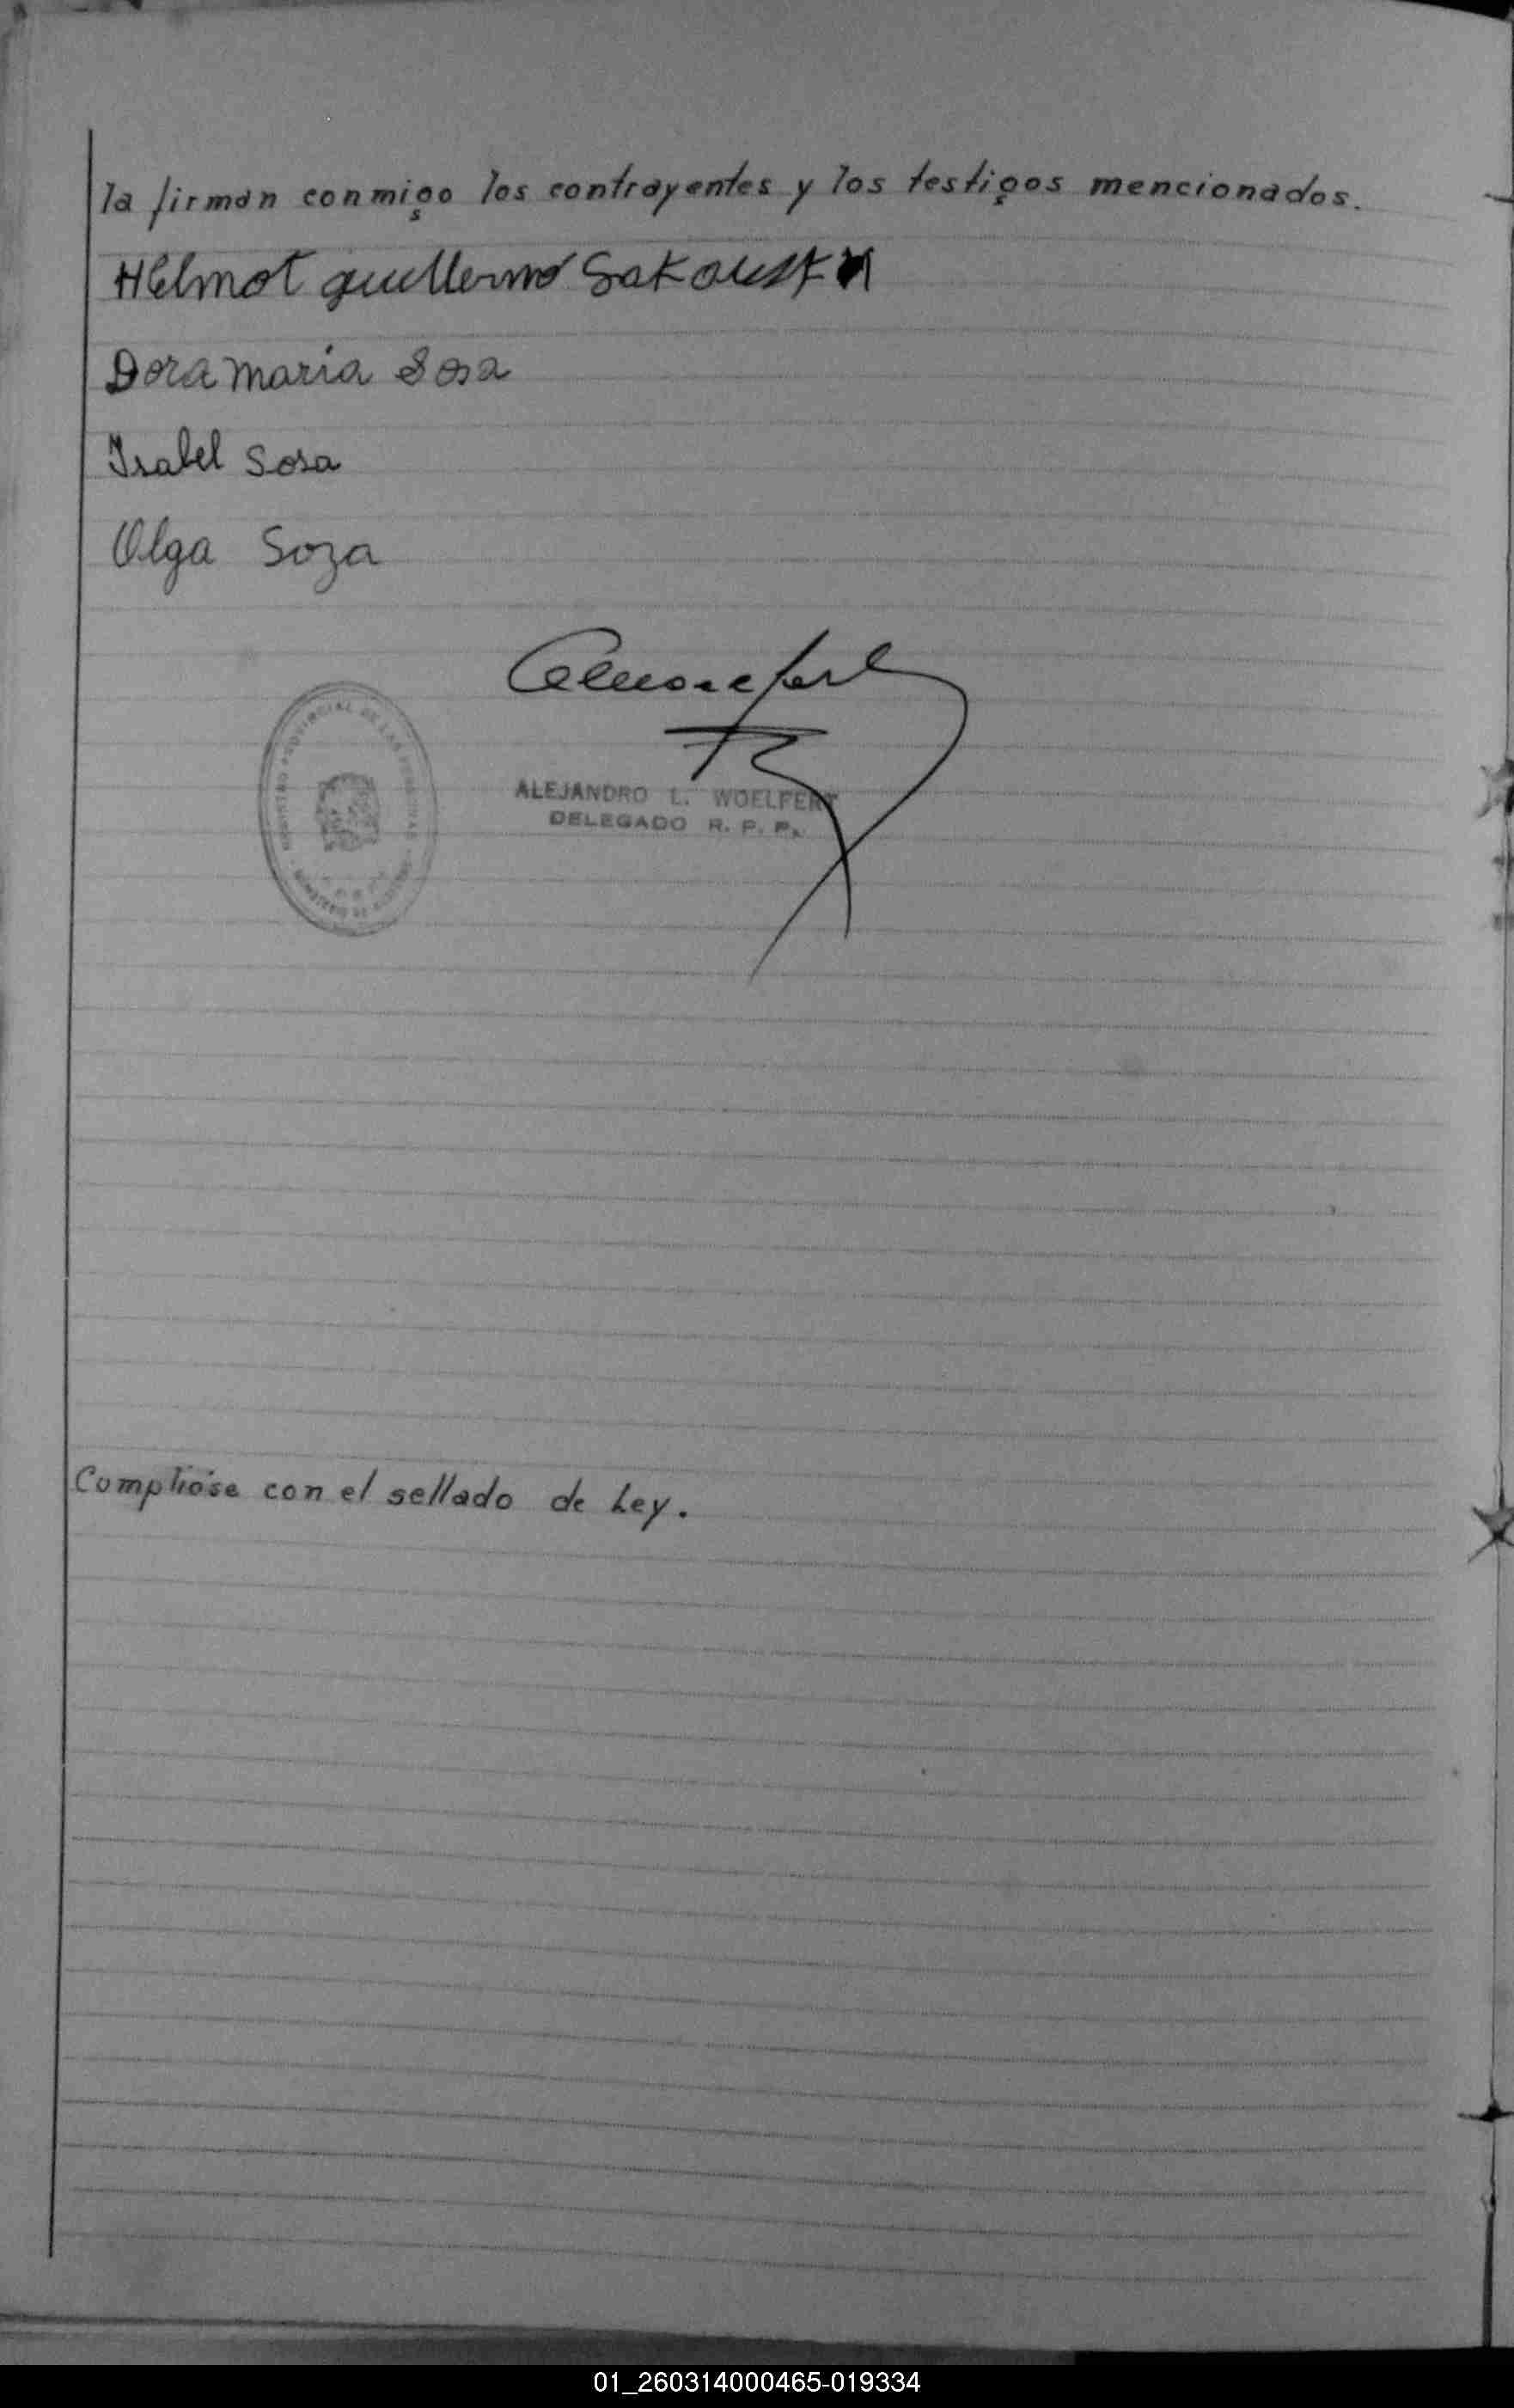 la firman conmigo los contrayentes y los testigos mencionados.
Helmot guillermo
Dora maria Sosa
Isabel Sosa
Olga Soza
REGISTRO PROVINCIAL DE LAS PERSONAS
ALEJANDRO L. WOELFERT
DELEGADO R. P. P.
Complióse con el sellado de Ley.
01_260314000465-019334